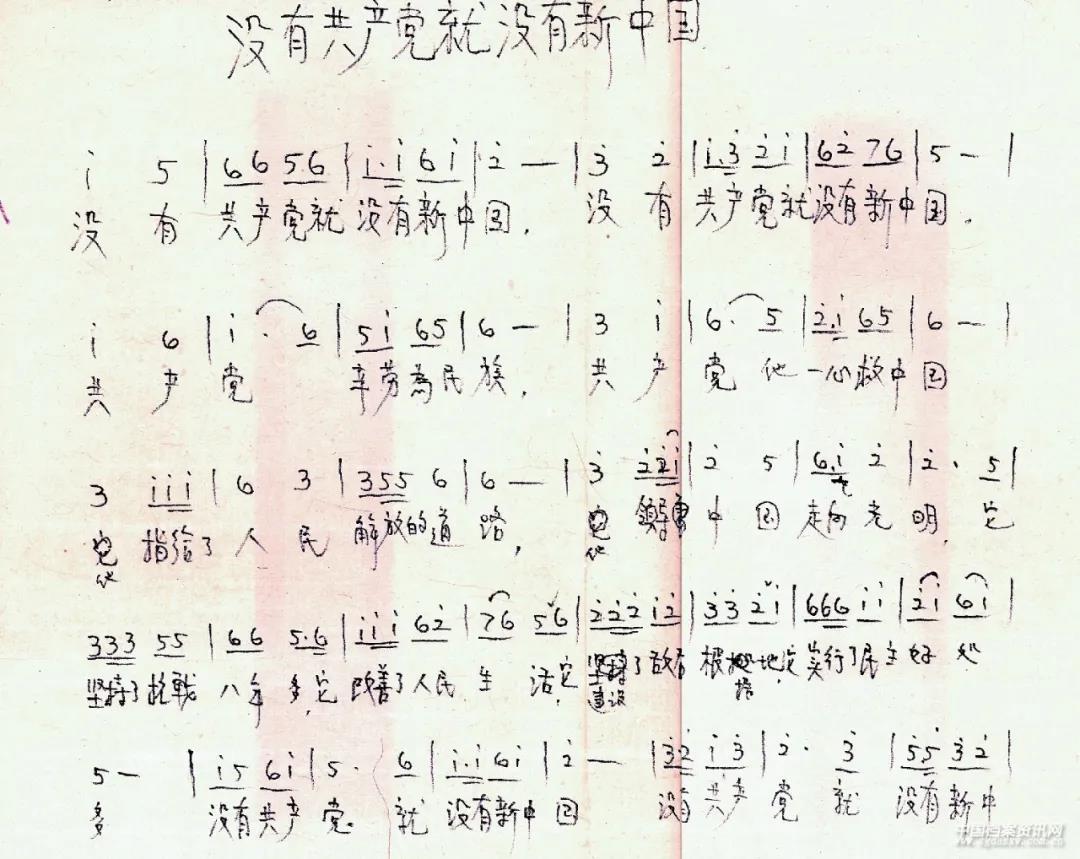 没有共产党就没有新中国
i 5 | 66 5.6 | i.i 6i | 2 — | 3 2 | i.3 2i | 62 76 | 5 — |
没 有 共产党就没有新中国. 没 有 共产党就没有新中国.
i 6 | i . 6 | 5i 65 | 6 — | 3 i | 6. 5 | 2.i 65 | 6 — |
共 产 党 辛劳為民族, 共 产 党 他一心救中国
3 iii | 6 3 | 355 6 | 6 — | 3 22i | 2 5 | 6.i 2 | 2. 5 |
他 指给了人 民 解放的道 路, 他 中 国 走向光 明, 它
333 55 | 66 5.6 | iii 62 | 76 56 | 222 i2 | 33 2i | 666 ii | 2i 6i |
坚持了抗戰 八年 多,它 改善了人民 生 活,它 建设了敌后 根据地,实行了民主好 处
5 — | i5 6i | 5. 6 | i.i 6i | 2 — | 32 i3 | 2. 3 | 55 32 |
多 没有共产 党 就 没有新中 国 没有共产 党 就 没有新中
中国档案资讯网